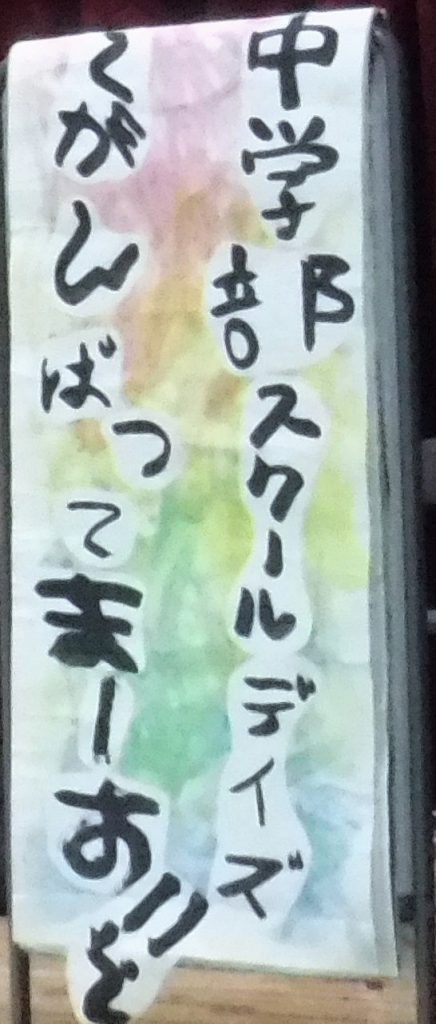 中学部スクールデイズ
〜がんばってまーす!!〜